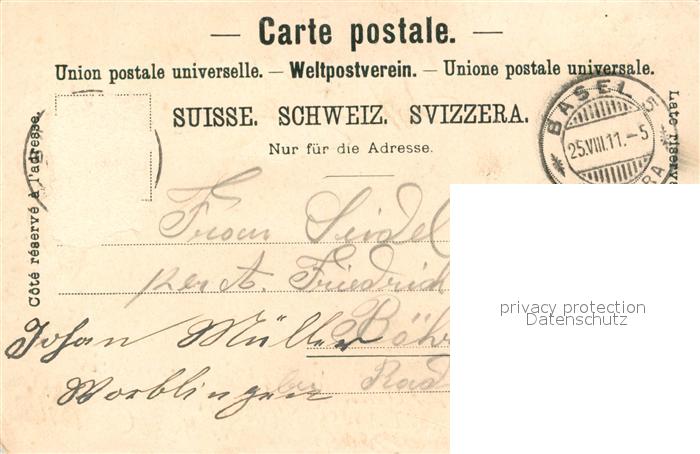 — Carte postale. —
Union postale universelle. — Weltpostverein. — Unione postale universale.
SUISSE. SCHWEIZ. SVIZZERA.
Nur für die Adresse.
Côté réservé à l'adresse.
Lato riserva
BASEL 5
25.VIII.11.-5
Seidel
per A. Friedrich
Böhr
Johan Müller
bei Rad
Worblingen
privacy protection
Datenschutz